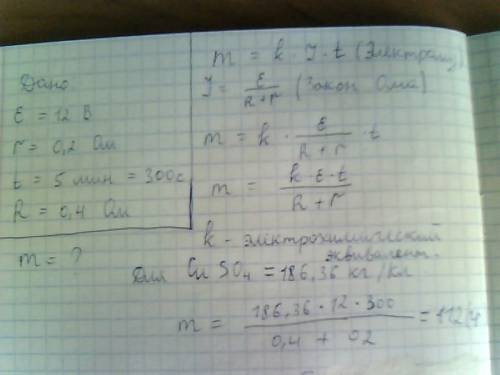 Дано
Ɛ = 12 В
r = 0,2 Ом
t = 5 мин = 300с
R = 0,4 Ом
m = ?
m = k · I · t (Электролиз)
I = Ɛ / R+r (Закон Ома)
m = k · Ɛ / R+r · t
m = k·Ɛ·t / R+r
k - электрохимический
эквивалент.
Для CuSO₄ = 186,36 кг/Кл
m = 186,36·12·300 / 0,4 + 02 =